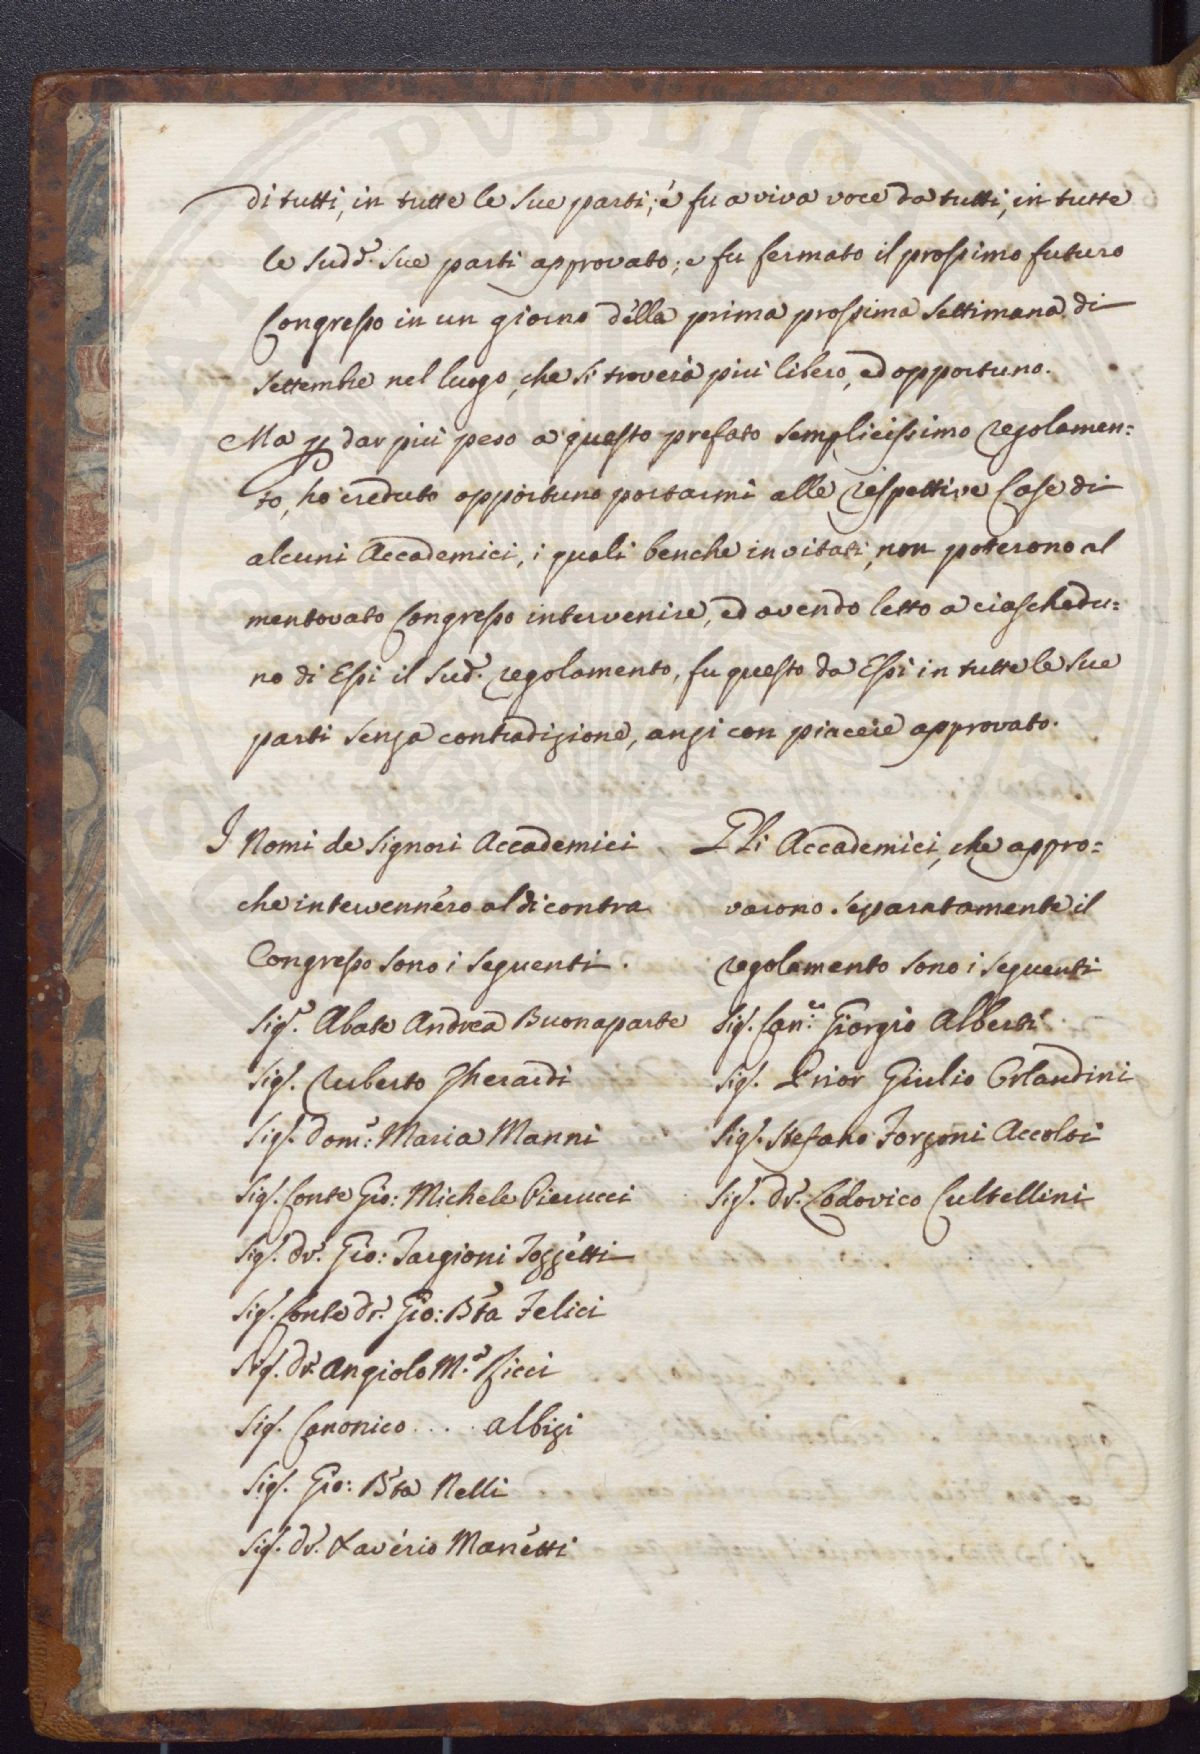 di tutti, in tutte le sue parti; e fu a viva voce da tutti, in tutte
le sudd.e sue parti approvato; e fu fermato il prossimo futuro
Congresso in un giorno della prima prossima settimana di
settembre nel luogo, che si troverà più libero, ed opportuno.
Ma p dar più peso a questo prefato semplicissimo regolamen=
to, ho creduto opportuno portarmi alle respettive Case di
alcuni Accademici, i quali benche invitati, non poterono al
mentovato Congresso intervenire, ed avendo letto a ciaschedu=
no di Essi il sud.o regolamento, fu questo da Essi in tutte le sue
parti senza contradizione, anzi con piacere approvato.
I Nomi de Signori Accademici
che intervennero al di contra
Congresso sono i seguenti.
Sig.r Abate Andrea Buonaparte
Sig.r Uberto Gherardi
Sig.r Dom.o: Maria Manni
Sig.r Conte Gio: Michele Pierucci
Sig.r Dr. Gio: Targioni Tozzetti
Sig.r Conte Dr. Gio: Bta Felici
Sig.r Dr. Angiolo M.a Ricci
Sig.r Canonico .... Albizi
Sig.r Gio: Bta Nelli
Sig.r Dr. Xaverio Manetti
Gli Accademici, che appro=
varono separatamente il
regolamento sono i seguenti
Sig.r Can.co Giorgio Alberti.
Sig.r Prior Giulio Orlandini
Sig.r Stefano Forzoni Accolti
Sig.r Dr. Lodovico Cultellini